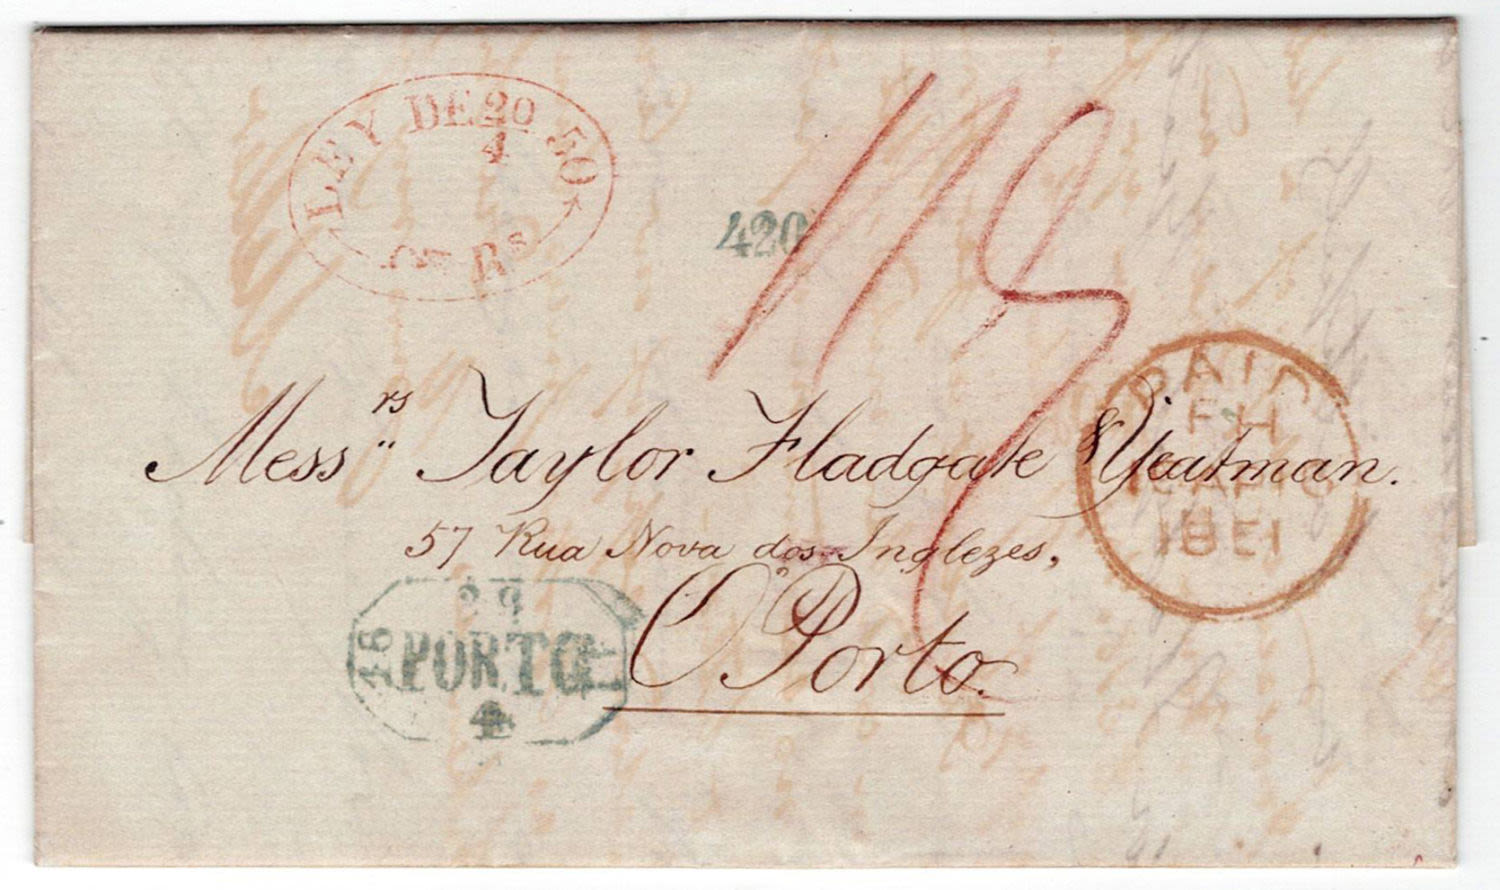 LEY DE 20/4 50
Rs
420
1/9
PAID
FH
1851
Messrs Taylor Fladgate & Yeatman.
57 Rua Nova dos Inglezes,
OPorto.
29
PORTO
4